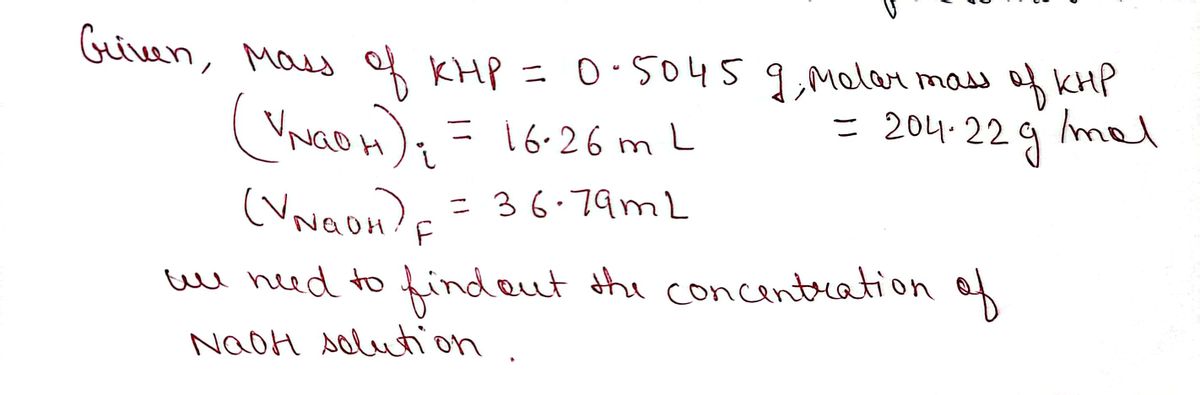 Given, Mass of KHP = 0.5045 g, Molar mass of KHP
(V NaOH) i = 16.26 mL = 204.22 g/mol
(V NaOH) F = 36.79 mL
we need to find out the concentration of
NaOH solution.